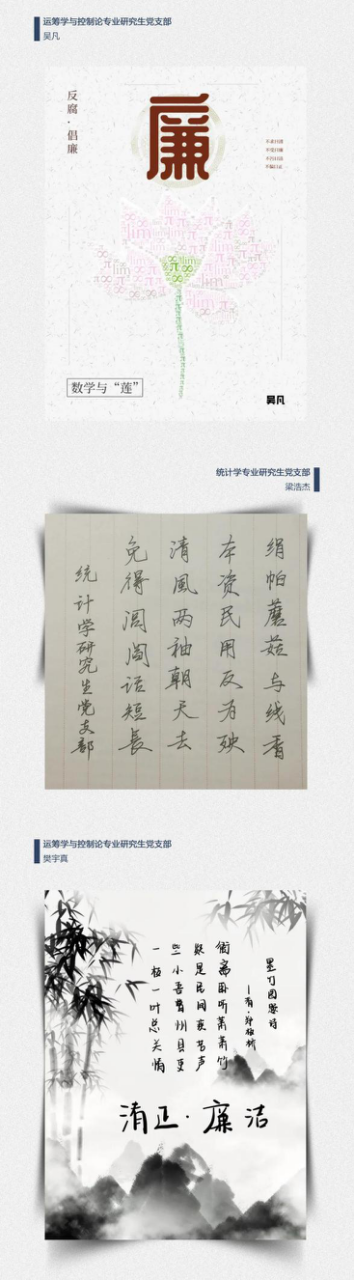 运筹学与控制论专业研究生党支部
吴凡
反腐·倡廉
廉
数学与“莲”
吴凡
统计学专业研究生党支部
梁浩杰
绢帕蘑菇与线香
本资民用反为殃
清風两袖朝天去
免得闾阎话短長
统计学研究生党支部
运筹学与控制论专业研究生党支部
樊宇真
墨竹图题诗
郑板桥
衙斋卧听萧萧竹
疑是民间疾苦声
些小吾曹州县吏
一枝一叶总关情
清正·廉洁